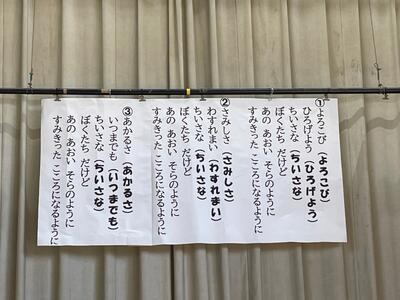 ①よろこび（よろこび）
ひろげよう（ひろげよう）
ちいさな（ちいさな）
ぼくたち だけど
あの あおい そらのように
すみきった こころになるように
②さみしさ（さみしさ）
わすれまい（わすれまい）
ちいさな（ちいさな）
ぼくたち だけど
あの あおい そらのように
すみきった こころになるように
③あかるさ（あかるさ）
いつまでも（いつまでも）
ちいさな（ちいさな）
ぼくたち だけど
あの あおい そらのように
すみきった こころになるように